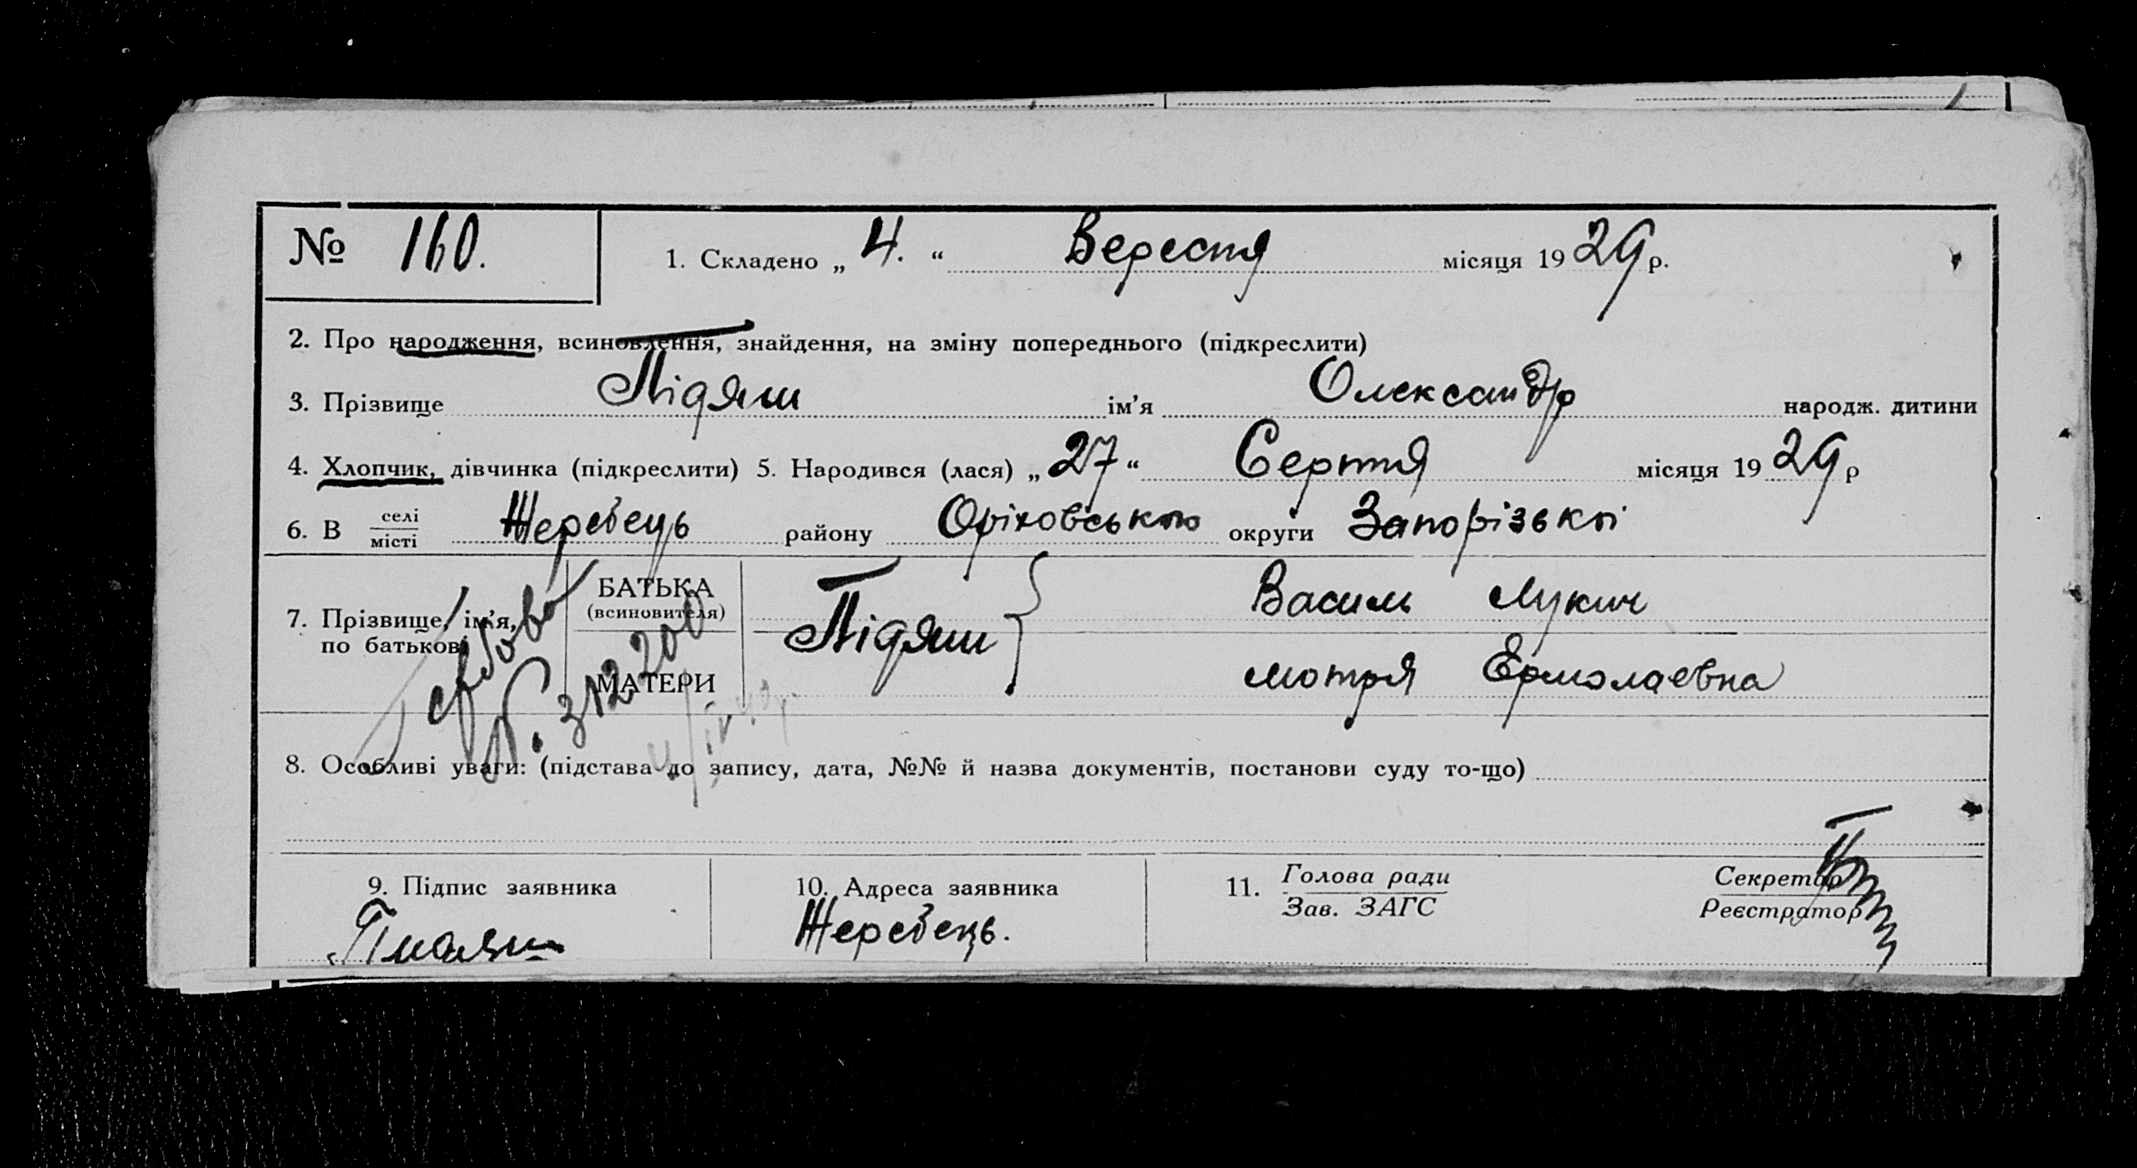 № 160. 1. Складено „ 4. “ Вересня місяця 1929 р.
2. Про народження, всиновлення, знайдення, на зміну попереднього (підкреслити)
3. Прізвище Підяш ім'я Олександр народж. дитини
4. Хлопчик, дівчинка (підкреслити) 5. Народився (лася) „ 27 “ Серпня місяця 1929 р
6. В селі
місті Жеребець району Оріховського округи Запорізькі
7. Прізвище, ім'я,
по батькові
БАТЬКА
(всиновителя)
МАТЕРИ
Підяш
Василь Лукич
Мотря Ермолаевна
№. 312200
8. Особливі уваги: (підстава до запису, дата, №№ й назва документів, постанови суду то-що)
9. Підпис заявника
10. Адреса заявника
Жеребець.
11. Голова ради
Зав. ЗАГС
Секретар
Реєстратор